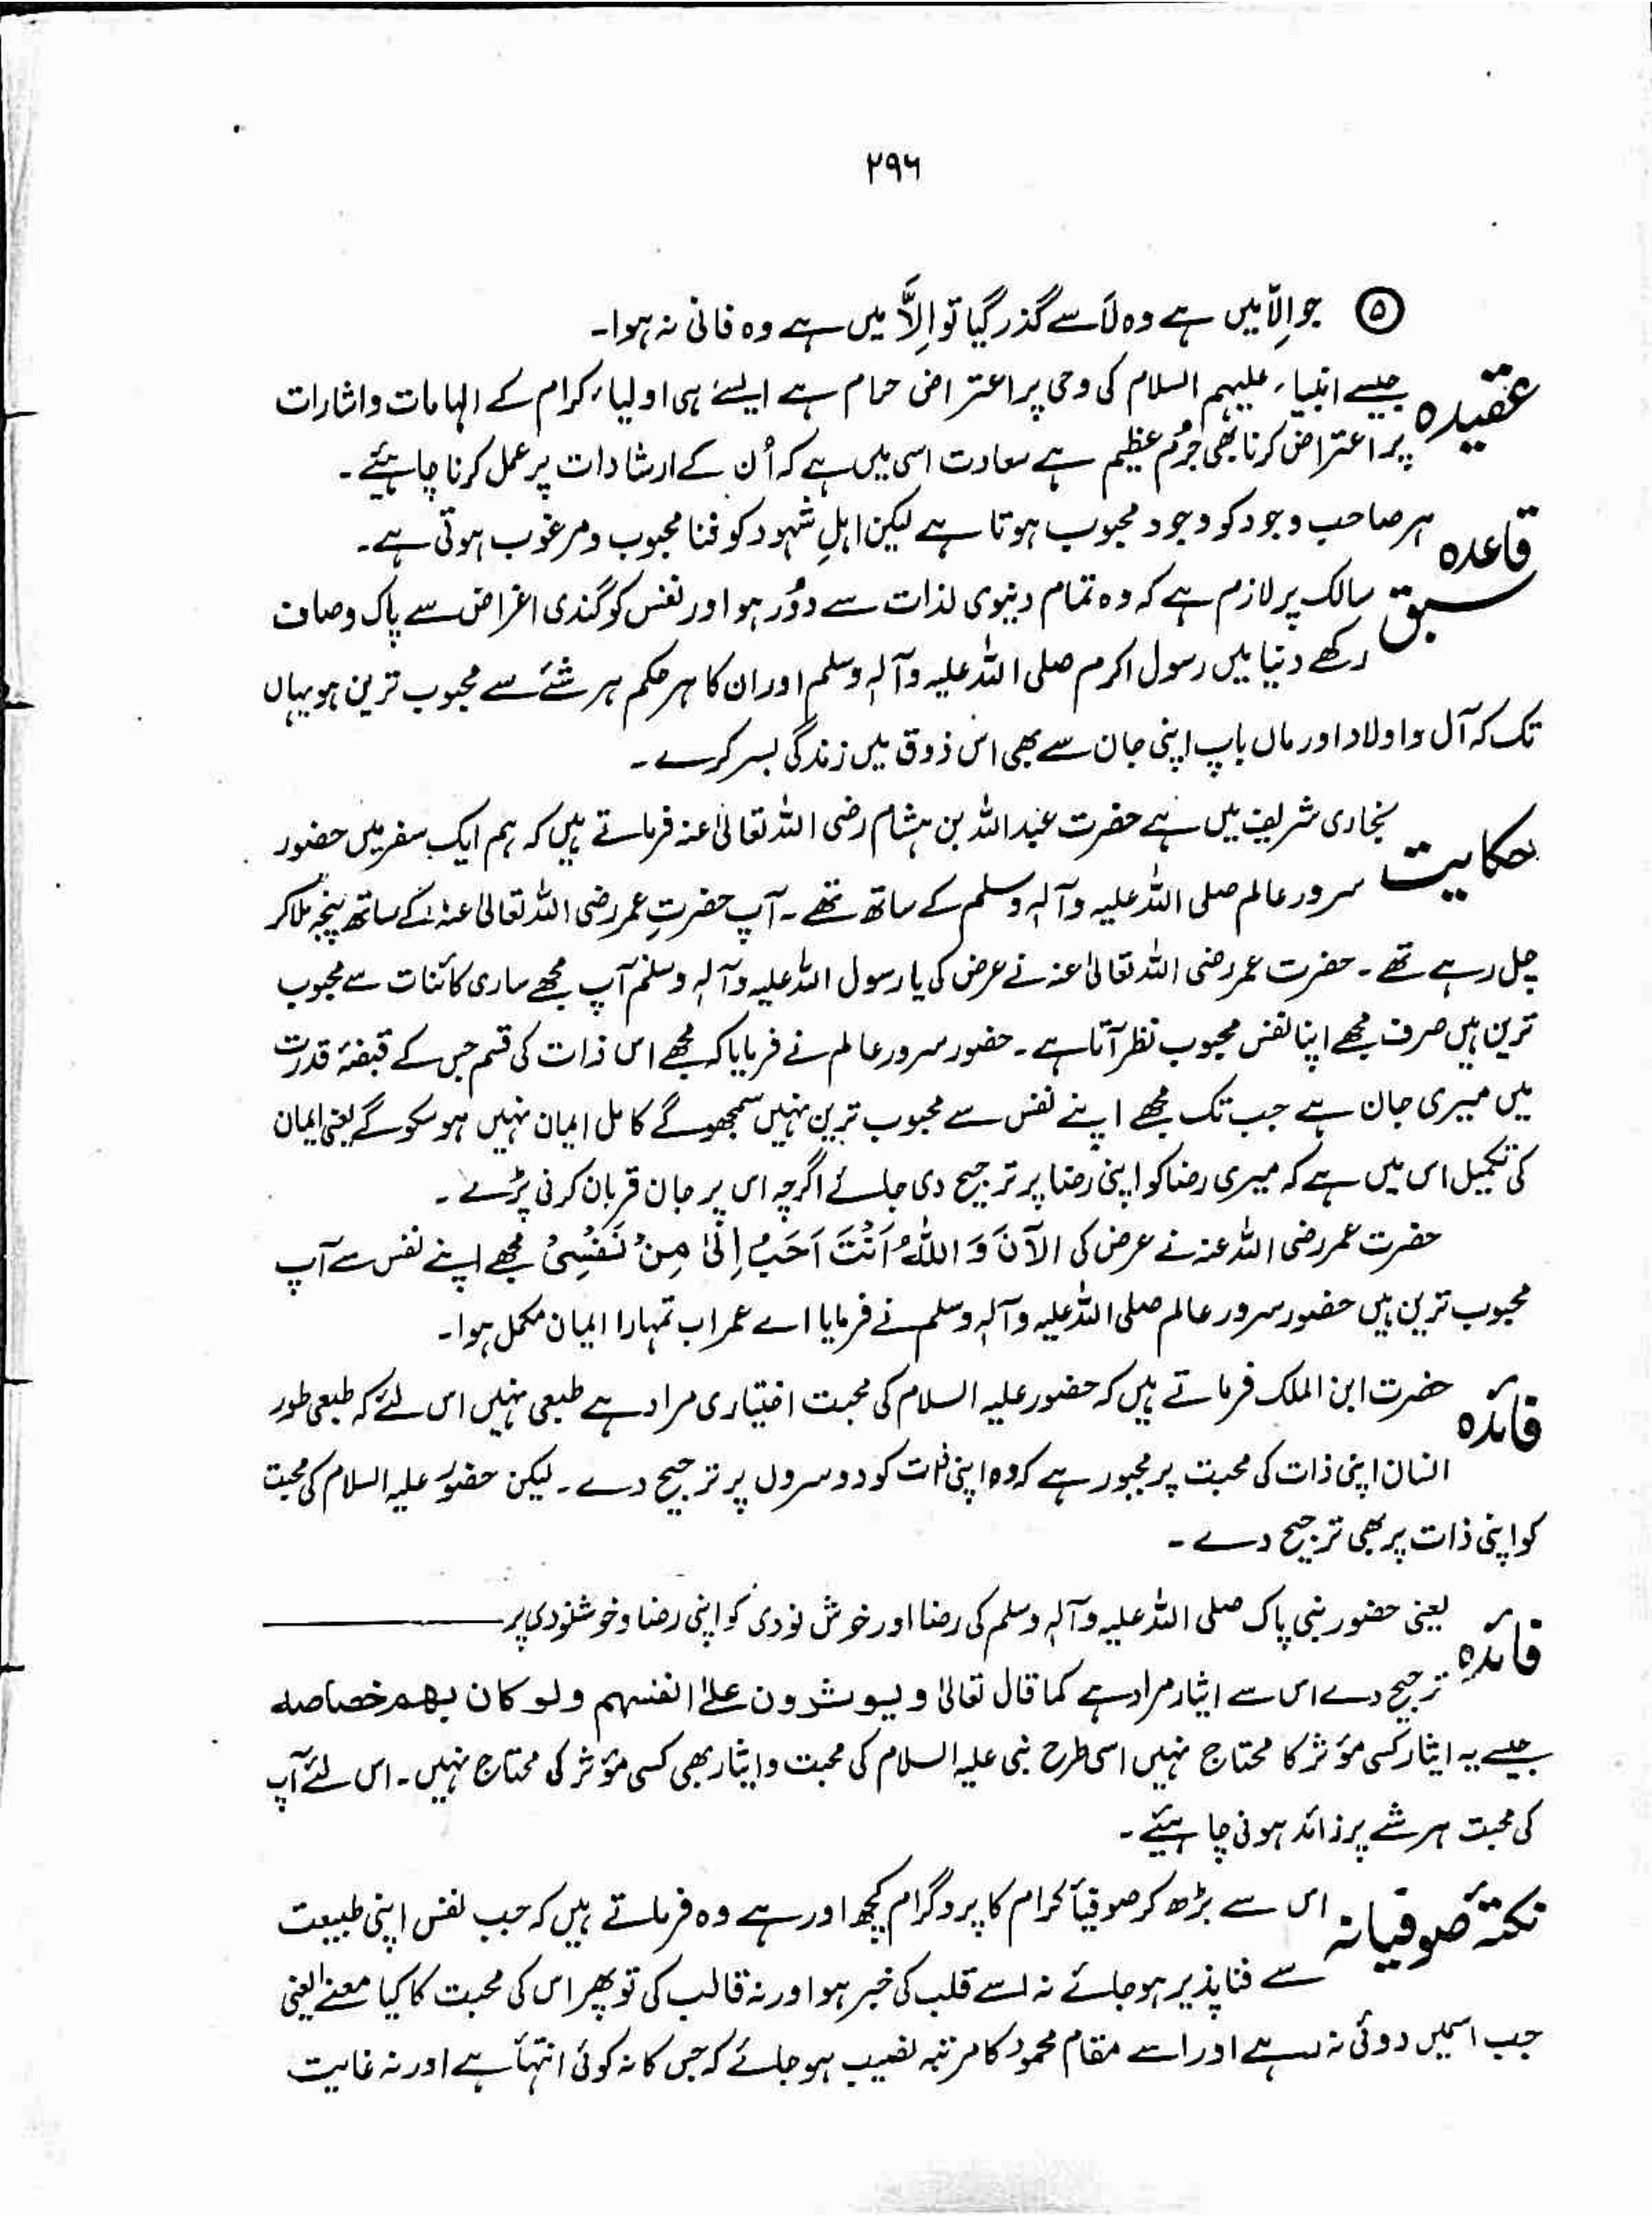 ۲۹۶
⑤ جو اِلّا میں ہے وہ لَا سے گذر گیا تو اِلَّا میں ہے وہ فانی نہ ہوا۔
عقیدہ جیسے انبیاء علیہم السلام کی وحی پر اعتراض حرام ہے ایسے ہی اولیاء کرام کے الہامات و اشارات
پر اعتراض کرنا بھی جُرم عظیم ہے سعادت اسی میں ہے کہ اُن کے ارشادات پر عمل کرنا چاہیئے۔
قاعدہ ہر صاحب وجود کو وجود محبوب ہوتا ہے لیکن اہلِ شہود کو فنا محبوب و مرغوب ہوتی ہے۔
سبق سالک پر لازم ہے کہ وہ تمام دنیوی لذات سے دُور ہو اور نفس کو گندی اغراض سے پاک و صاف
رکھے دنیا میں رسول اکرم صلی اللہ علیہ وآلہٖ وسلم اور ان کا ہر حکم ہر شئے سے محبوب ترین ہو یہاں
تک کہ آل و اولاد اور ماں باپ اپنی جان سے بھی اس ذوق میں زندگی بسر کرے۔
حکایت بخاری شریف میں ہے حضرت عبداللہ بن ہشام رضی اللہ تعالیٰ عنہ فرماتے ہیں کہ ہم ایک سفر میں حضور
سرور عالم صلی اللہ علیہ وآلہٖ وسلم کے ساتھ تھے۔ آپ حضرتِ عمر رضی اللہ تعالیٰ عنہ کے ساتھ پنجہ ملا کر
چل رہے تھے۔ حضرت عمر رضی اللہ تعالیٰ عنہ نے عرض کی یا رسول اللہ علیہ وآلہٖ وسلم آپ مجھے ساری کائنات سے محبوب
ترین ہیں صرف مجھے اپنا نفس محبوب نظر آتا ہے۔ حضور سرور عالم نے فرمایا کہ مجھے اس ذات کی قسم جس کے قبضۂ قدرت
میں میری جان ہے جب تک مجھے اپنے نفس سے محبوب ترین نہیں سمجھو گے کامل ایمان نہیں ہو سکو گے یعنی ایمان
کی تکمیل اس میں ہے کہ میری رضا کو اپنی رضا پر ترجیح دی جائے اگرچہ اس پر جان قربان کرنی پڑے۔
حضرت عمر رضی اللہ عنہ نے عرض کی الآنَ وَ اللّٰہُ اَنْتَ اَحَبُّ اِلَیّٰ مِنْ نَفْسِیْ مجھے اپنے نفس سے آپ
محبوب ترین ہیں حضور سرور عالم صلی اللہ علیہ وآلہٖ وسلم نے فرمایا اے عمر اب تمہارا ایمان مکمل ہوا۔
فائدہ حضرت ابن الملک فرماتے ہیں کہ حضور علیہ السلام کی محبت اختیاری مراد ہے طبعی نہیں اس لئے کہ طبعی طور
انسان اپنی ذات کی محبت پر مجبور ہے کہ وہ اپنی ذات کو دوسروں پر ترجیح دے۔ لیکن حضور علیہ السلام کی محبت
کو اپنی ذات پر بھی ترجیح دے۔
فائدہ یعنی حضور نبی پاک صلی اللہ علیہ وآلہٖ وسلم کی رضا اور خوش نودی کو اپنی رضا و خوشنودی پر
ترجیح دے اس سے ایثار مراد ہے کما قال تعالیٰ و یوثرون علیٰ انفسہم ولو کان بھم خصاصہ
جیسے یہ ایثار کسی مؤثر کا محتاج نہیں اسی طرح نبی علیہ السلام کی محبت و ایثار بھی کسی مؤثر کی محتاج نہیں۔ اس لئے آپ
کی محبت ہر شے پر زائد ہونی چاہیئے۔
نکتۂ صوفیانہ اس سے بڑھ کر صوفیأ کرام کا پروگرام کچھ اور ہے وہ فرماتے ہیں کہ جب نفس اپنی طبیعت
سے فنا پذیر ہو جائے نہ اسے قلب کی خبر ہو اور نہ قالب کی تو پھر اس کی محبت کا کیا معنے یعنی
جب اسمیں دوئی نہ رہے اور اسے مقام محمود کا مرتبہ نصیب ہو جائے کہ جس کا نہ کوئی انتہأ ہے اور نہ غایت